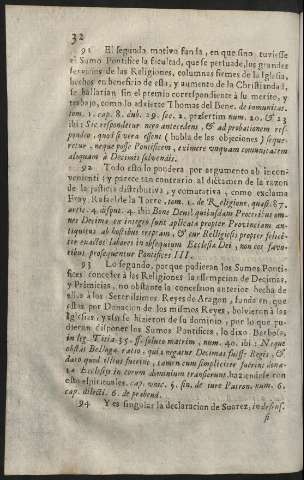 32
91 El segundo motivo funda, en que sino tuviesse
el Sumo Pontifice la facultad, que se persuade, los grandes
servicios de las Religiones, columnas firmes de la Iglesia,
hechos en beneficio de esta, y aumento de la Christiandad,
se hallarian sin el premio correspondiente à su merito, y
trabajo, como lo advierte Thomas del Bene. de comunitat.
tom. 1. cap. 8. dub. 29. sec. 2. præsertim num. 20. & 23
ibi: Sic respondetur nova antecedens, & ad probationem res-
pondeo, quod si vera essent (habla de las objeciones) seque-
retur, neque posse Pontificem, eximere unquam comunitatem
aliquam à Decimis solvendis.
92 Todo esto lo pondera por argumento ab incon-
venienti; y parece tan contrario al dictamen de la razon
de la justicia distributiva, y comutativa, como exclama
Fray Rafael de la Torre, tom. 1. de Religione, quæst. 87.
artic. 4. disput. 4. ibi: Bone Deus! quibusdam Proceribus om-
nes Decimæ ex integro sunt aplicatæ propter Provinciam an-
tiquitus ab hostibus ereptam, & aut Relligiosis propter felici-
ter exactos labores in obsequium Ecclesiæ Dei, non eos favo-
ribus prosequentur Pontifices III.
93 Lo segundo, porque pudieran los Sumos Ponti-
fices conceder à los Religiones la essempcion de Decimas,
y Primicias, no obstante la concession anterior hecha de
ellas à los Serenissimos Reyes de Aragon, funda en que
estas por Donacion de los mismos Reyes, bolvieron à las
Iglesias, y assi se hizieron de su dominio, y por lo que pu-
dieran disponer los Sumos Pontifices, lo dixo Barbosa,
in leg. Titia 35. ff. soluto matrim, num. 40. ibi: Neque
obstat Belluga ratio, qui negatur Decimas fuisse Regis, &
dato quod illius fuerint, tamen cum simpliciter fuerint dona-
tæ Ecclesijs in eorum dominium transierunt, haziendose con
esto espirituales. cap. unic. §. fin. de iure Patron. num. 6.
cap. dilecti. 6. de probend.
94 Y es singular la declaracion de Suarez, in defens.
fi